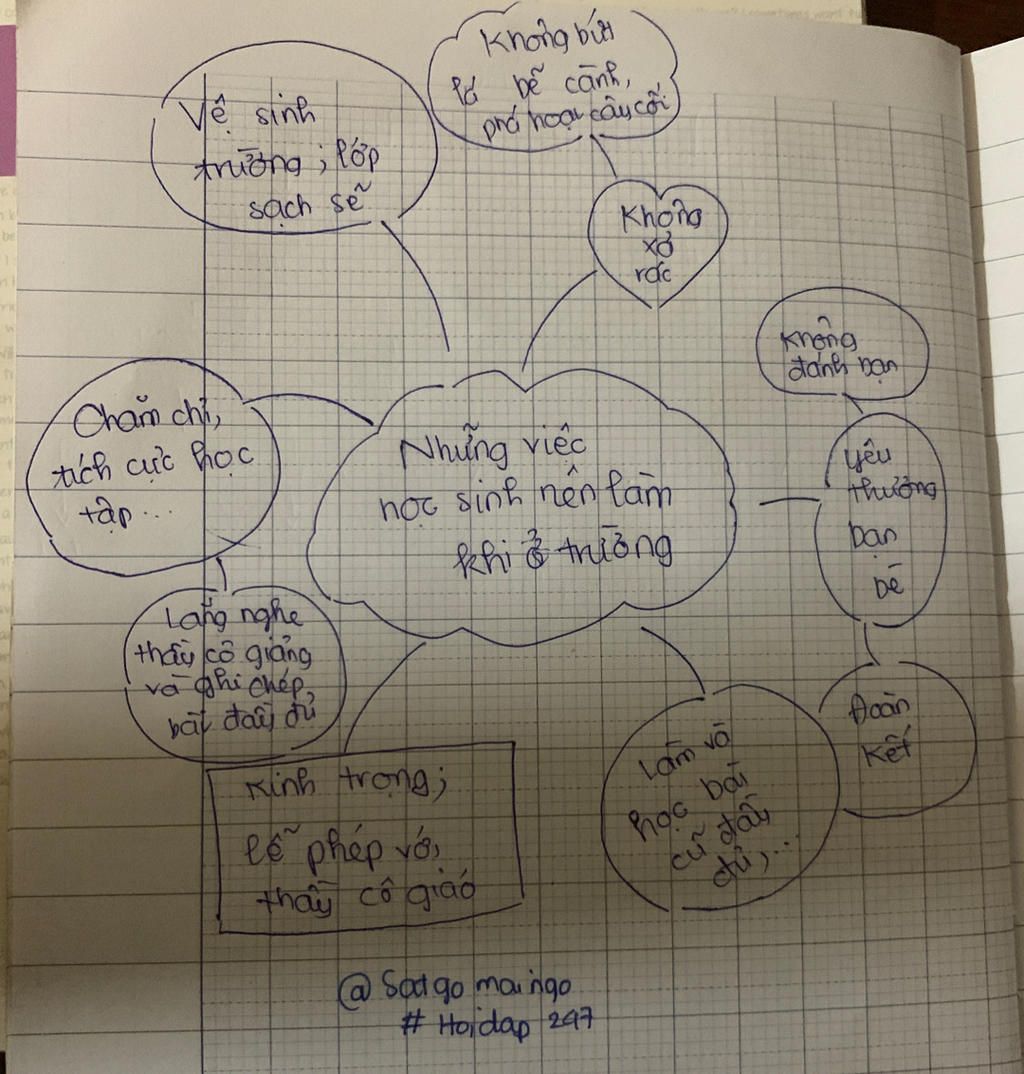 Không bứt
lá bẽ cành,
phá hoại cây cối
Vệ sinh
trường; lớp
sạch sẽ
Không
xả
rác
Không
đánh bạn
Chăm chỉ,
tích cực học
tập...
Những việc
học sinh nên làm
khi ở trường
yêu
thương
bạn
bè
Lắng nghe
thầy cô giảng
và ghi chép,
bài đầy đủ
Đoàn
kết
Làm và
học bài
cũ đầy
đủ,...
Kính trọng;
lễ phép với
thầy cô giáo
@ Satgo maingo
# Hoidap 247